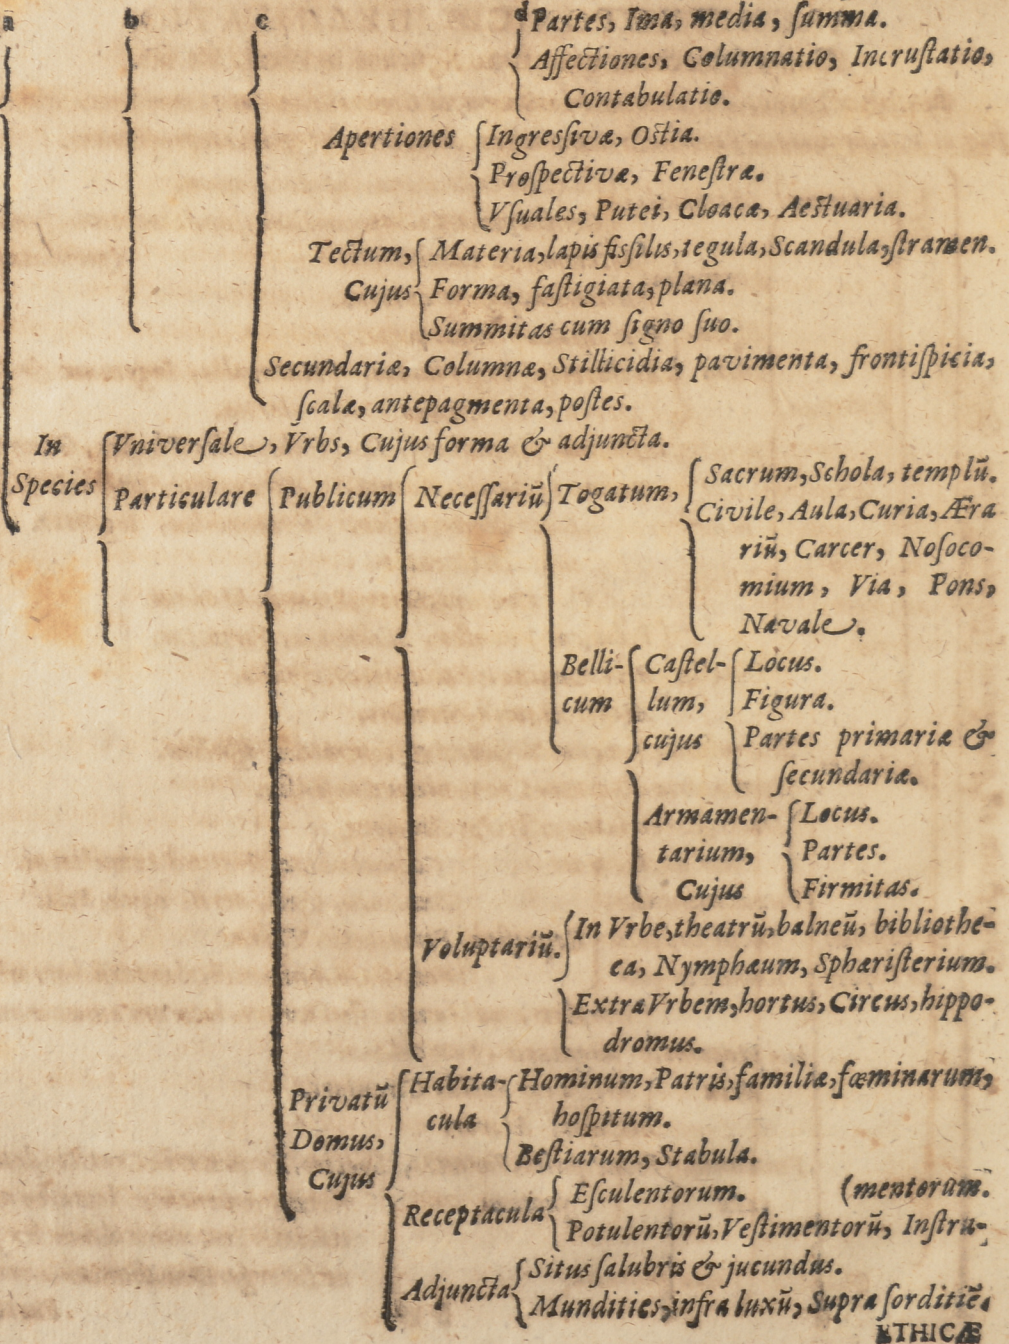 a b c d Partes, Ima, media, ſumma.
Affectiones, Columnatio, Incruſtatio,
Contabulatio.
Apertiones Ingreſſivæ, Oſtia.
Proſpectivæ, Feneſtræ.
Vſuales, Putei, Cloacæ, Aeſtuaria.
Tectum, Materia, lapis fiſſilis, tegula, Scandula, ſtramen.
Cujus Forma, faſtigiata, plana.
Summitas cum ſigno ſuo.
Secundariæ, Columnæ, Stillicidia, pavimenta, frontiſpicia,
ſcalæ, antepagmenta, poſtes.
In Vniverſale, Vrbs, Cujus forma & adjuncta.
Species Particulare Publicum Neceſſariū Togatum, Sacrum, Schola, templū.
Civile, Aula, Curia, Æra
riū, Carcer, Noſoco-
mium, Via, Pons,
Navale.
Belli- Caſtel- Locus.
cum lum, Figura.
cujus Partes primariæ &
ſecundariæ.
Armamen- Locus.
tarium, Partes.
Cujus Firmitas.
Voluptariū. In Vrbe, theatrū, balneū, bibliothe-
ca, Nymphæum, Sphæriſterium.
Extra Vrbem, hortus, Circus, hippo-
dromus.
Privatū Habita- Hominum, Patris, familiæ, fœminarum,
Domus, cula hoſpitum.
Cujus Beſtiarum, Stabula.
Receptacula Eſculentorum. (mentorum.
Potulentorū, Veſtimentorū, Inſtru-
Adjuncta Situs ſalubris & jucundus.
Mundities, infra luxū, Supra ſorditiē.
ETHICÆ